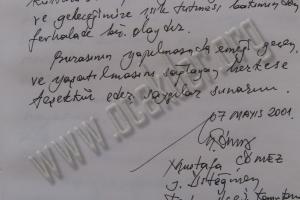 ve geleceğimize ışık tutması bakımından
fevkalade bir olaydır.
Burasının yapılmasında emeği geçen,
ve yaşatılmasını sağlayan herkese
teşekkür eder saygılar sunarım.
07 MAYIS 2001.
Mustafa GÖMEZ
J. Üsteğmen